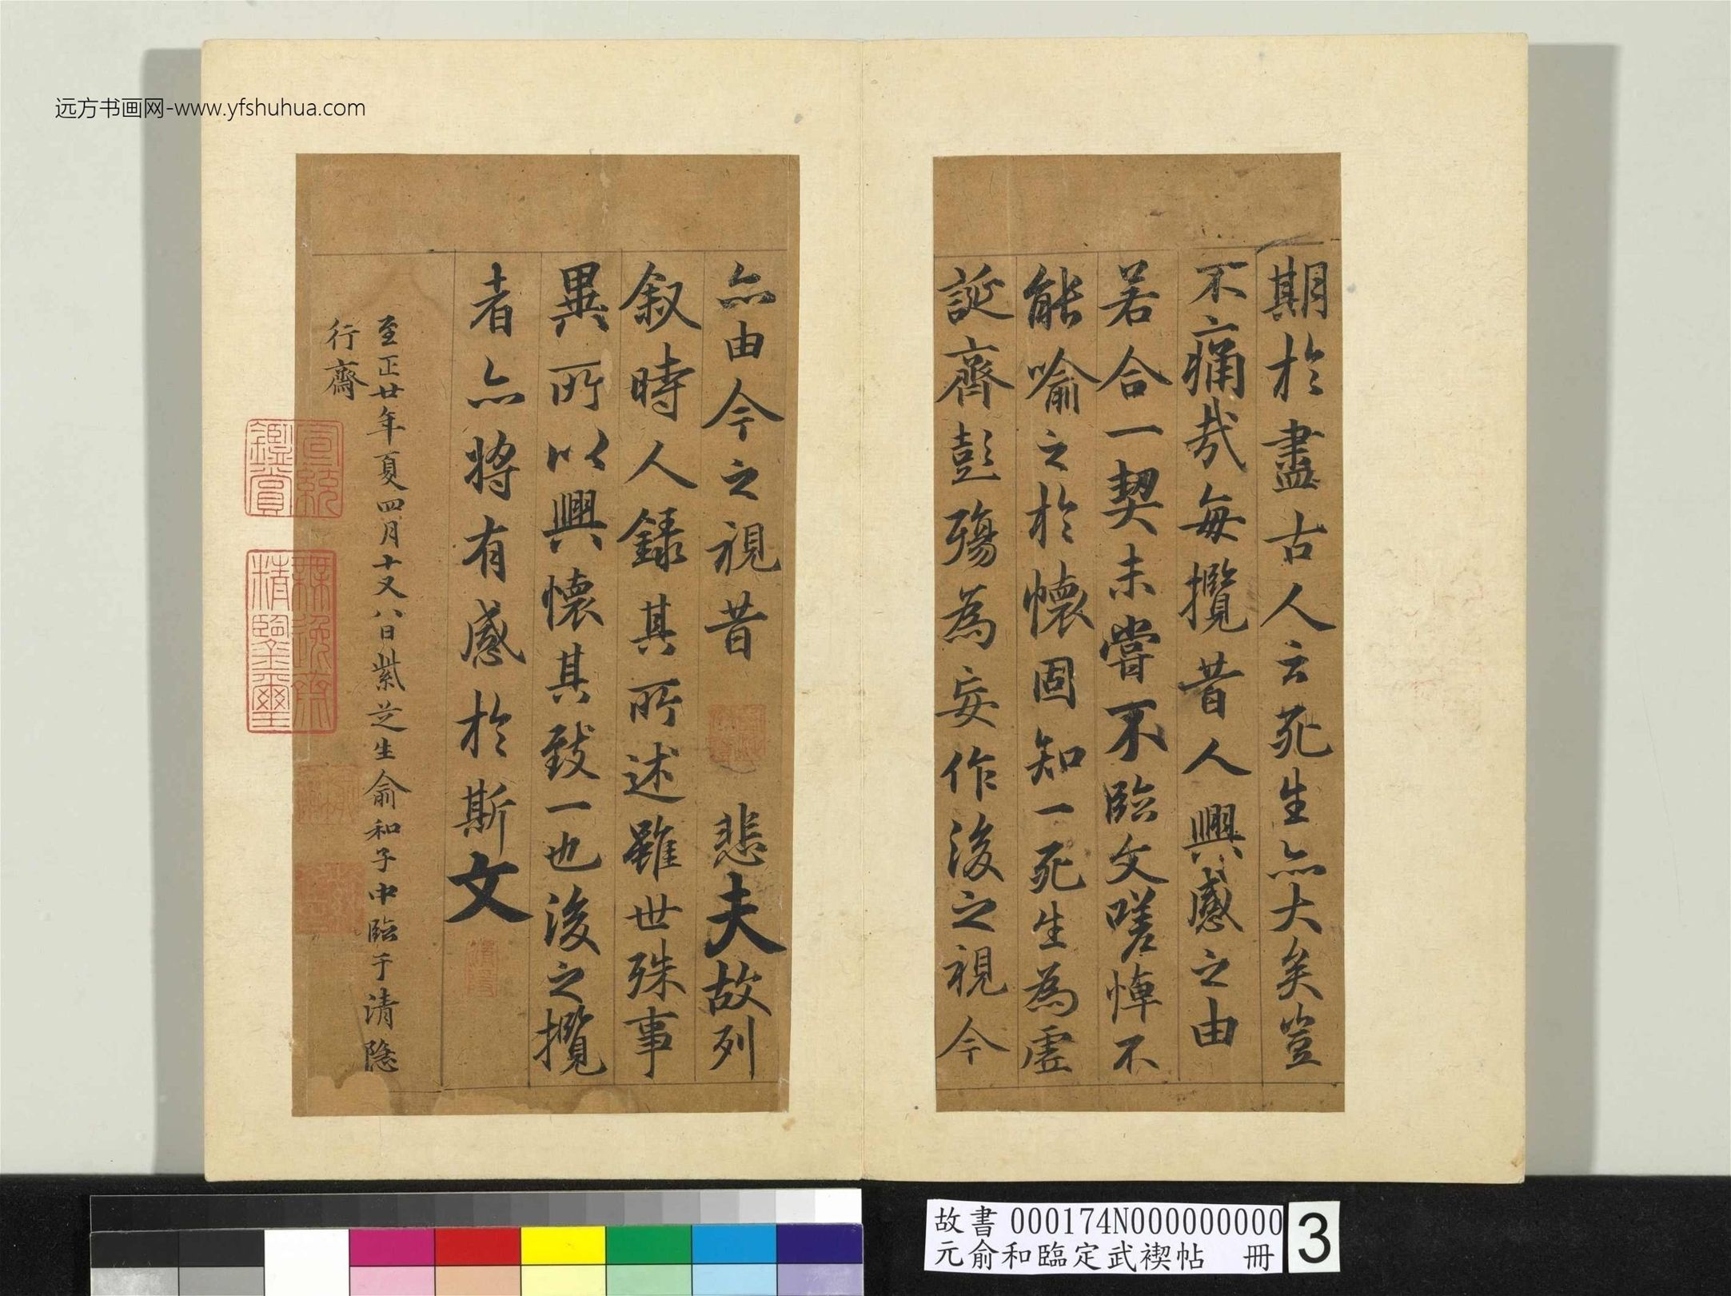 远方书画网-www.yfshuhua.com
期於盡古人云死生亦大矣豈
不痛哉每攬昔人興感之由
若合一契未嘗不臨文嗟悼不
能喻之於懷固知一死生為虛
誕齊彭殤為妄作後之視今
亦由今之視昔 悲夫故列
叙時人錄其所述雖世殊事
異所以興懷其致一也後之攬
者亦將有感於斯文
至正廿年夏四月十又八日紫芝生俞和子中臨于清隱
行齋
宣統
鑑賞
無逸齋
精鑒璽
故書 000174N000000000
元俞和臨定武禊帖 冊
3